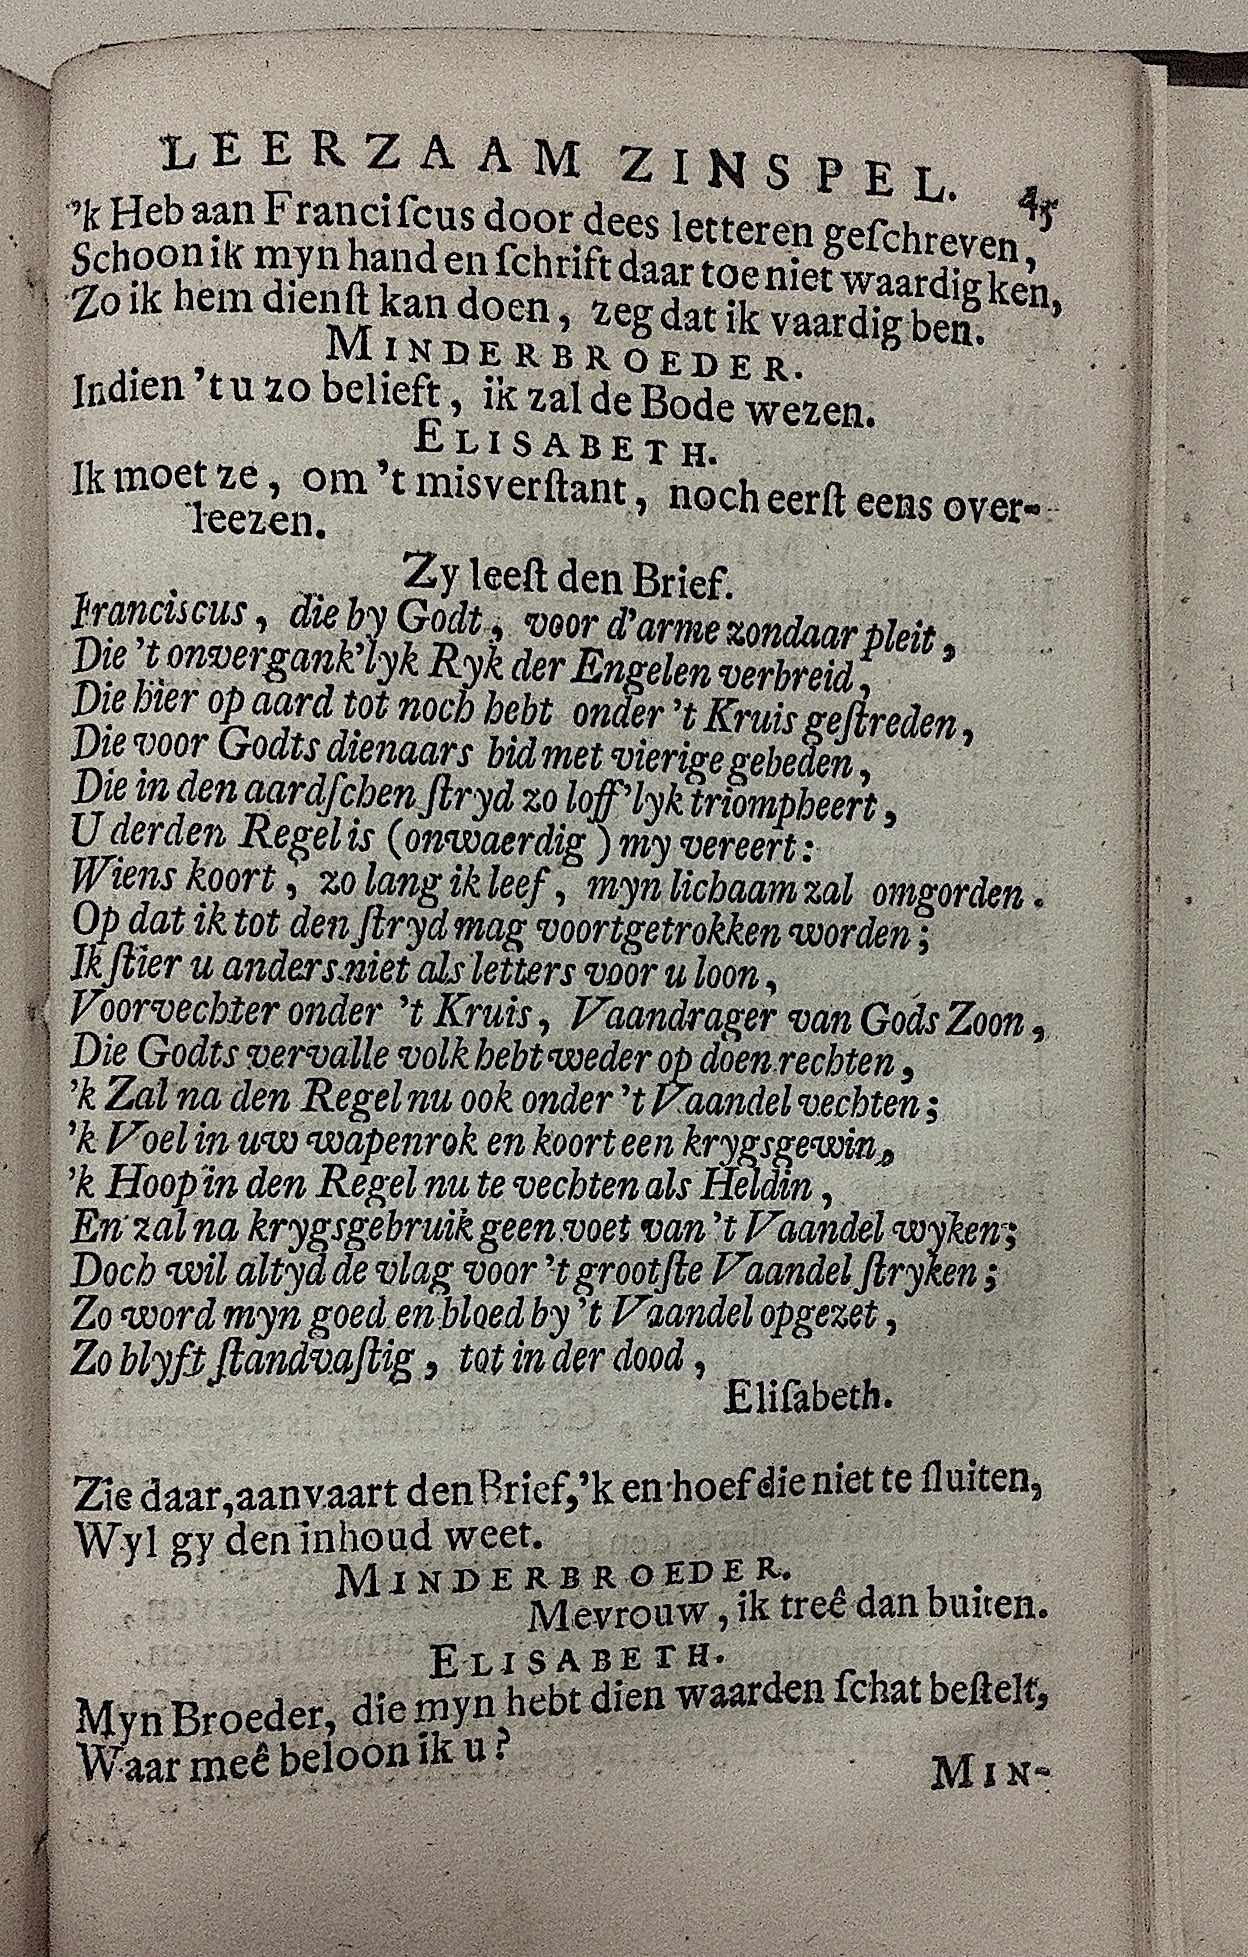 LEERZAAM ZINSPEL. 45
'k Heb aan Franciſcus door dees letteren geſchreven,
Schoon ik myn hand en ſchrift daar toe niet waardig ken,
Zo ik hem dienſt kan doen, zeg dat ik vaardig ben.
MINDERBROEDER.
Indien 't u zo belieft, ik zal de Bode wezen.
ELISABETH.
Ik moet ze, om 't misverſtant, noch eerſt eens over-
leezen.
Zy leeſt den Brief.
Franciscus, die by Godt, voor d'arme zondaar pleit,
Die 't onvergank'lyk Ryk der Engelen verbreid,
Die hier op aard tot noch hebt onder 't Kruis geſtreden,
Die voor Godts dienaars bid met vierige gebeden,
Die in den aardſchen ſtryd zo loff'lyk triompheert,
U derden Regel is (onwaerdig) my vereert:
Wiens koort, zo lang ik leef, myn lichaam zal omgorden.
Op dat ik tot den ſtryd mag voortgetrokken worden;
Ik ſtier u anders niet als letters voor u loon,
Voorvechter onder 't Kruis, Vaandrager van Gods Zoon,
Die Godts vervalle volk hebt weder op doen rechten,
'k Zal na den Regel nu ook onder 't Vaandel vechten;
'k Voel in uw wapenrok en koort een krygsgewin,
'k Hoop in den Regel nu te vechten als Heldin,
En zal na krygsgebruik geen voet van 't Vaandel wyken;
Doch wil altyd de vlag voor 't grootſte Vaandel ſtryken;
Zo word myn goed en bloed by 't Vaandel opgezet,
Zo blyft ſtandvaſtig, tot in der dood,
Eliſabeth.
Zie daar, aanvaart den Brief, 'k en hoef die niet te ſluiten,
Wyl gy den inhoud weet.
MINDERBROEDER.
Mevrouw, ik treê dan buiten.
ELISABETH.
Myn Broeder, die myn hebt dien waarden ſchat beſtelt,
Waar meê beloon ik u?
MIN-